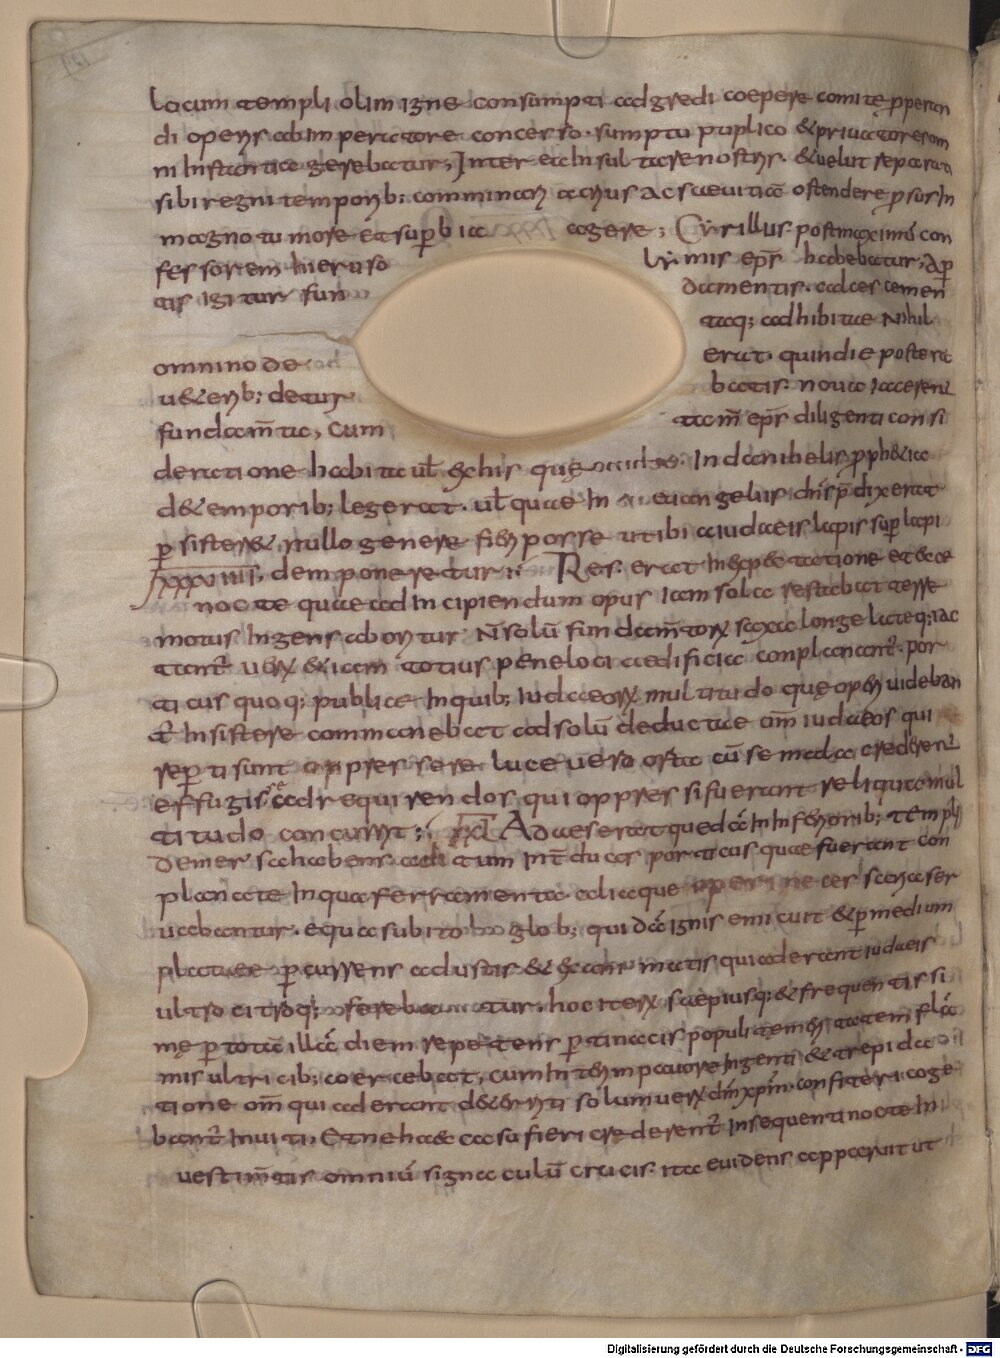 locum templi olim igne consumpti adgredi coepere comite properan
di operis ab imperatore concesso. sumptu puplico &priuato res om
ni instantia gerebatur; Inter ea insultare nostris. &uelut reparatis
sibi regni temporib; comminari acrius ac saeuitiā ostendere prorsus in
magno tumore et superbia agere; Cyrillus post maximū con
fessorem hieruso lymis eps habebatur; Aper
tis igitur fun damentis. adces cemen
taq; adhibitae Nihil
omnino de erat. quin die postera
u&erib; detur batis. noua iacerent
fundam̄ta, Cum tam̄ eps diligenti consi
deratione habita ul̄ ex his quę In danihelis proph&ia
de temporib; legerat. ul̄ quae In euangeliis dn̄s prędixerat
persister& nullo genere fieri posse ut ibi a iudaeis lapis super lapi
xxxviiii. dem poneretur; Res erat In expectatione et ecce
nocte quae ad Incipiendum opus iam sola restabat terre
motus Ingens aboritur. N̄ solū fundam̄torum saxa longe lateq; iac
tant̄ uerum &iam totius pene loci aedificia conplanant̄. por
ticus quoq; publicae In quib; iudaeorum multitudo quę operi uideban
t̄ Insistere commanebat ad solū deductae om̄ iudaeos qui
reperti sunt oppressere luce uero orta cū se mala crederent
effugisse ad requirendos qui oppressi fuerant reliqua mul
titudo concurrit; xl Aedes erat quedā In Inferiorib; templi
demersa habens aditum Int̄ duas porticus quae fuerant con
planate In qua ferramenta. aliaque operi necessaria ser
uabantur. e qua subito glob; quidā ignis emicuit &per medium
plateae percurrens adustis & exanimatis qui aderant iudaeis
ultro citroq; ferebatur. hoc iterum saepiusq; &frequentissi
mę per totā illā diem repetens pertinacis populi temeritatem flā
mis ultricib; coercebat, cum Interim pauore Ingenti &trepida
tione om̄ qui aderant d&erriti solum uerum dm̄ xpm̄. confiteri coge
bant̄ Inuiti. Et ne haec casu fieri crederent̄ Insequenti nocte In
uestim̄tis omniū signaculū crucis. ita euidens apparuit ut
Digitalisierung gefördert durch die Deutsche Forschungsgemeinschaft - DFG